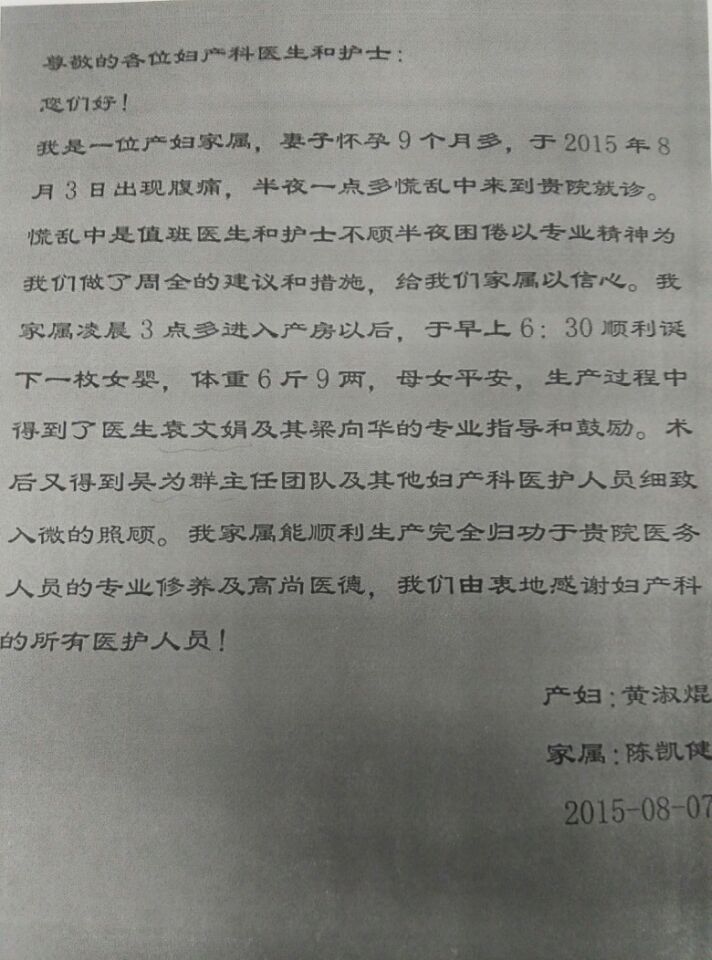 尊敬的各位妇产科医生和护士：
您们好！
我是一位产妇家属，妻子怀孕9个月多，于2015年8
月3日出现腹痛，半夜一点多慌乱中来到贵院就诊。
慌乱中是值班医生和护士不顾半夜困倦以专业精神为
我们做了周全的建议和措施，给我们家属以信心。我
家属凌晨3点多进入产房以后，于早上6：30顺利诞
下一枚女婴，体重6斤9两，母女平安，生产过程中
得到了医生袁文娟及其梁向华的专业指导和鼓励。术
后又得到吴为群主任团队及其他妇产科医护人员细致
入微的照顾。我家属能顺利生产完全归功于贵院医务
人员的专业修养及高尚医德，我们由衷地感谢妇产科
的所有医护人员！
产妇：黄淑焜
家属：陈凯健
2015-08-07